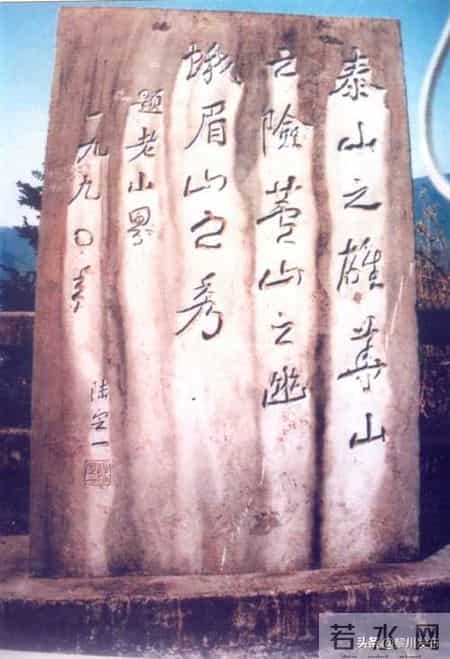 泰山之雄華山
之險蘆山之幽
峨眉山之秀
題老山界
一九九〇年
陆定一
若水网
头条